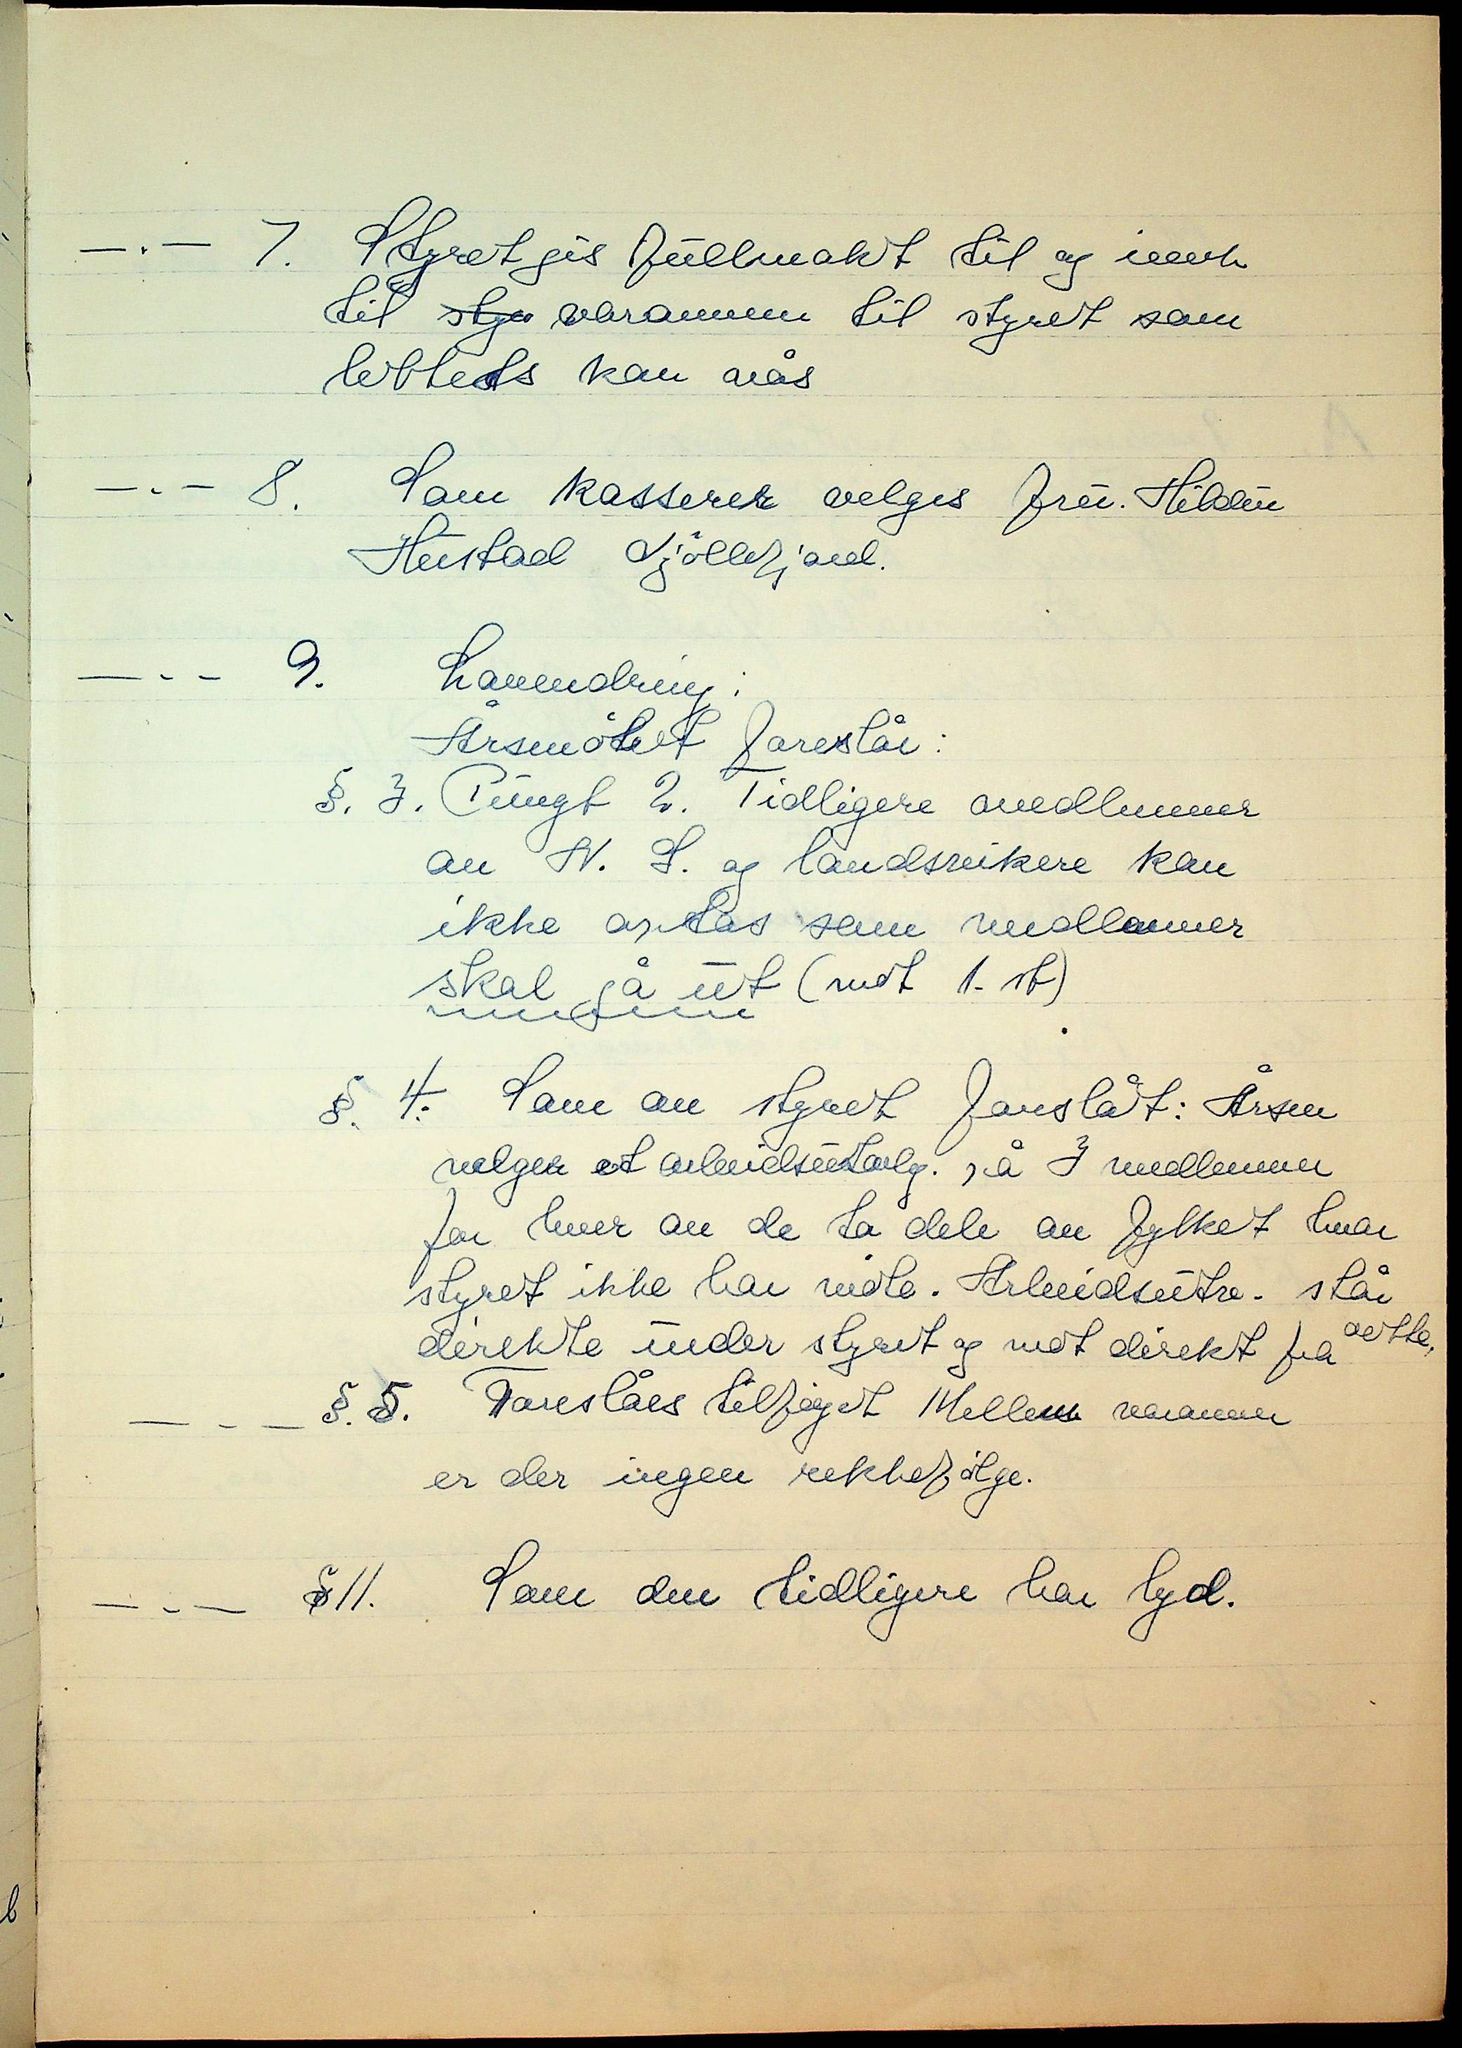 —.— 7. Styret gis fullmakt til og innk
til stye varamenn til styret som
lettests kan nås
—.— 8. Som kasserer velges fru. Hildur
Hustad Kjøllefjord.
—.— 9. Lovendring:
Årsmøtet foreslår:
§. 3. Pungt 2. Tidligere medlemmer
av N. S. og landsvikere kan
ikke optas som medlemmer
skal gå ut (mot 1. st)
§. 4. Som av styret forslåt: Årsm
velger et arbeidsutvalg. på 3 medlemmer
for hver av de to dele av fylket hvor
styret ikke har sete. Arbeidsutv. står
direkte under styret og mot direkt fra dette.
— . — §. 5. Foreslåes tilføyet Mellem varamenn
er der ingen rekkefølge.
— . — § 11. Som den tidligere har lyd.